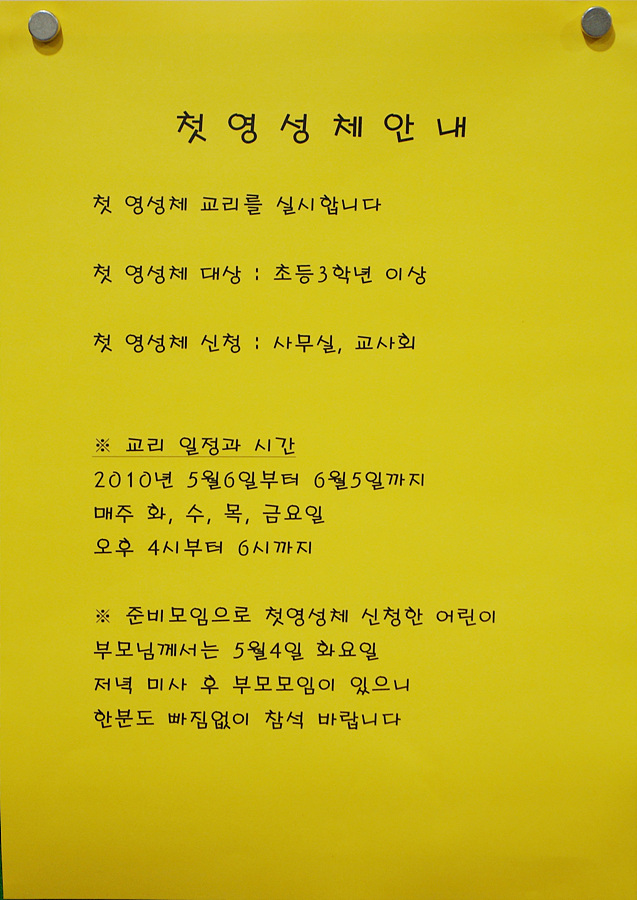 첫 영 성 체 안 내
첫 영성체 교리를 실시합니다
첫 영성체 대상 : 초등3학년 이상
첫 영성체 신청 : 사무실, 교사회
※ 교리 일정과 시간
2010년 5월6일부터 6월5일까지
매주 화, 수, 목, 금요일
오후 4시부터 6시까지
※ 준비모임으로 첫영성체 신청한 어린이
부모님께서는 5월4일 화요일
저녁 미사 후 부모모임이 있으니
한분도 빠짐없이 참석 바랍니다